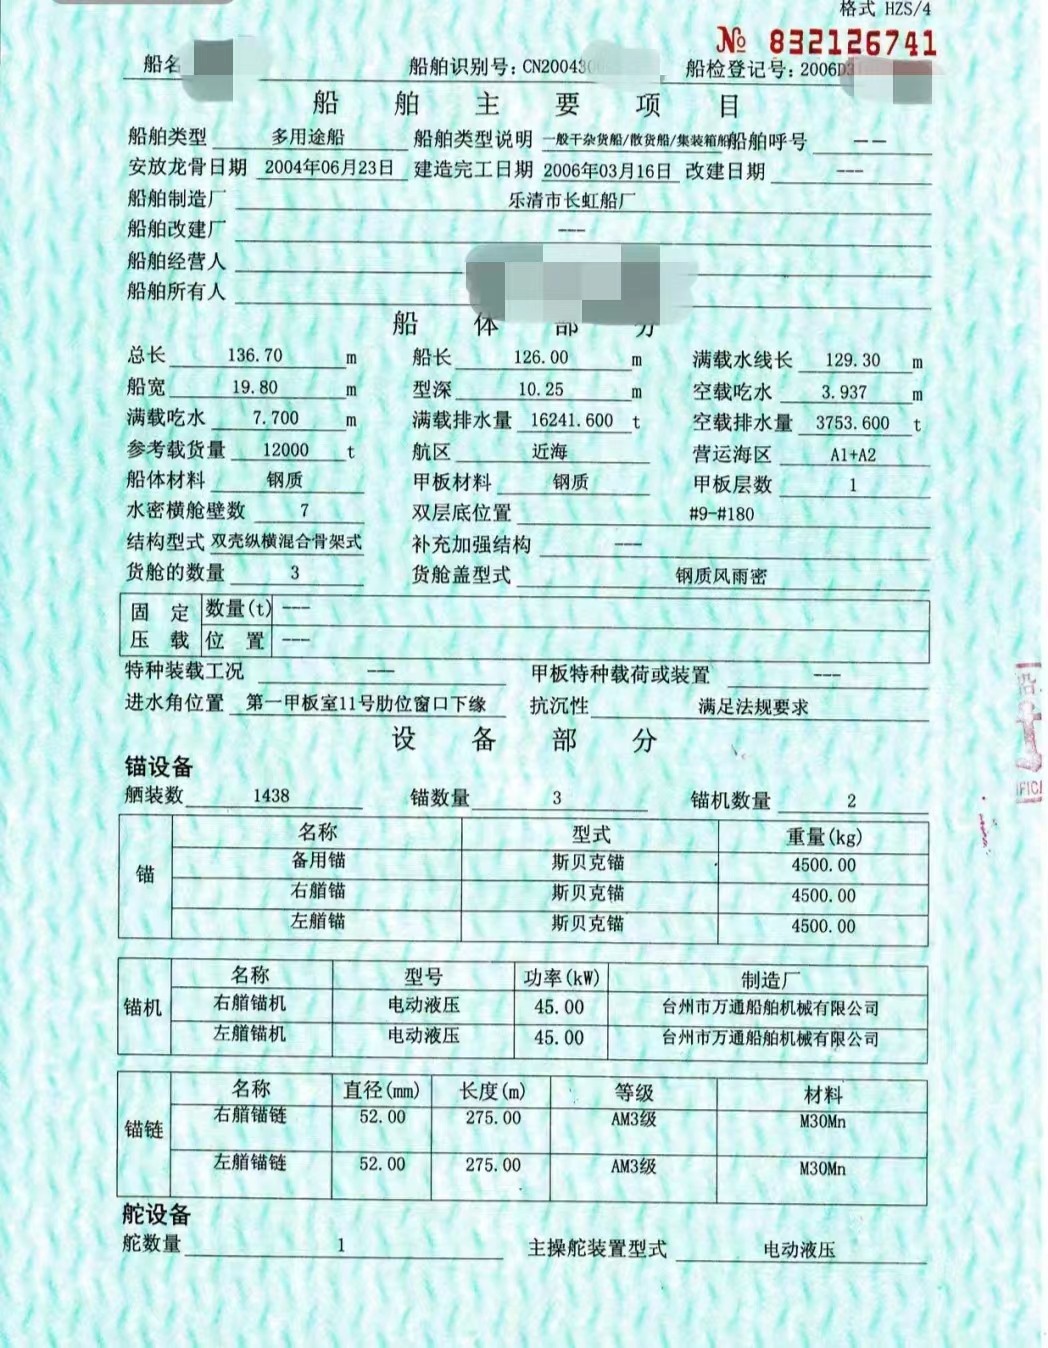 格式 HZS/4
№ 832126741
船名 船舶识别号:CN20043 船检登记号:2006D3
船舶主要项目
船舶类型 多用途船 船舶类型说明 一般干杂货船/散货船/集装箱船 船舶呼号 --
安放龙骨日期 2004年06月23日 建造完工日期 2006年03月16日 改建日期 ---
船舶制造厂 乐清市长虹船厂
船舶改建厂 ---
船舶经营人
船舶所有人
船体部分
总长 136.70 m 船长 126.00 m 满载水线长 129.30 m
船宽 19.80 m 型深 10.25 m 空载吃水 3.937 m
满载吃水 7.700 m 满载排水量 16241.600 t 空载排水量 3753.600 t
参考载货量 12000 t 航区 近海 营运海区 A1+A2
船体材料 钢质 甲板材料 钢质 甲板层数 1
水密横舱壁数 7 双层底位置 #9-#180
结构型式 双壳纵横混合骨架式 补充加强结构 ---
货舱的数量 3 货舱盖型式 钢质风雨密
固定压载 数量(t) ---
位置 ---
特种装载工况 --- 甲板特种载荷或装置 ---
进水角位置 第一甲板室11号肋位窗口下缘 抗沉性 满足法规要求
设备部分
锚设备
舾装数 1438 锚数量 3 锚机数量 2
锚 名称 型式 重量(kg)
备用锚 斯贝克锚 4500.00
右艏锚 斯贝克锚 4500.00
左艏锚 斯贝克锚 4500.00
锚机 名称 型号 功率(kW) 制造厂
右艏锚机 电动液压 45.00 台州市万通船舶机械有限公司
左艏锚机 电动液压 45.00 台州市万通船舶机械有限公司
锚链 名称 直径(mm) 长度(m) 等级 材料
右艏锚链 52.00 275.00 AM3级 M30Mn
左艏锚链 52.00 275.00 AM3级 M30Mn
舵设备
舵数量 1 主操舵装置型式 电动液压